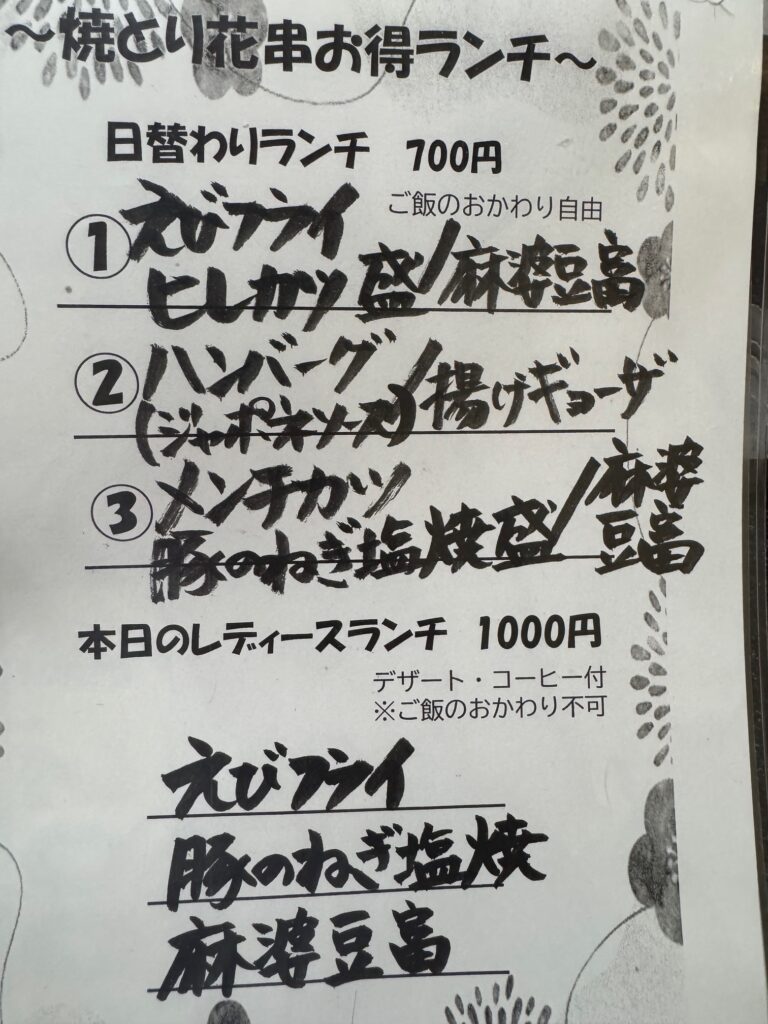 ～焼とり花串お得ランチ～
日替わりランチ 700円
ご飯のおかわり自由
① えびフライ
ヒレカツ 盛/麻婆豆富
② ハンバーグ
(ジャポネソース)/揚げギョーザ
③ メンチカツ
豚のねぎ塩焼盛/麻婆
豆富
本日のレディースランチ 1000円
デザート・コーヒー付
※ご飯のおかわり不可
えびフライ
豚のねぎ塩焼
麻婆豆富